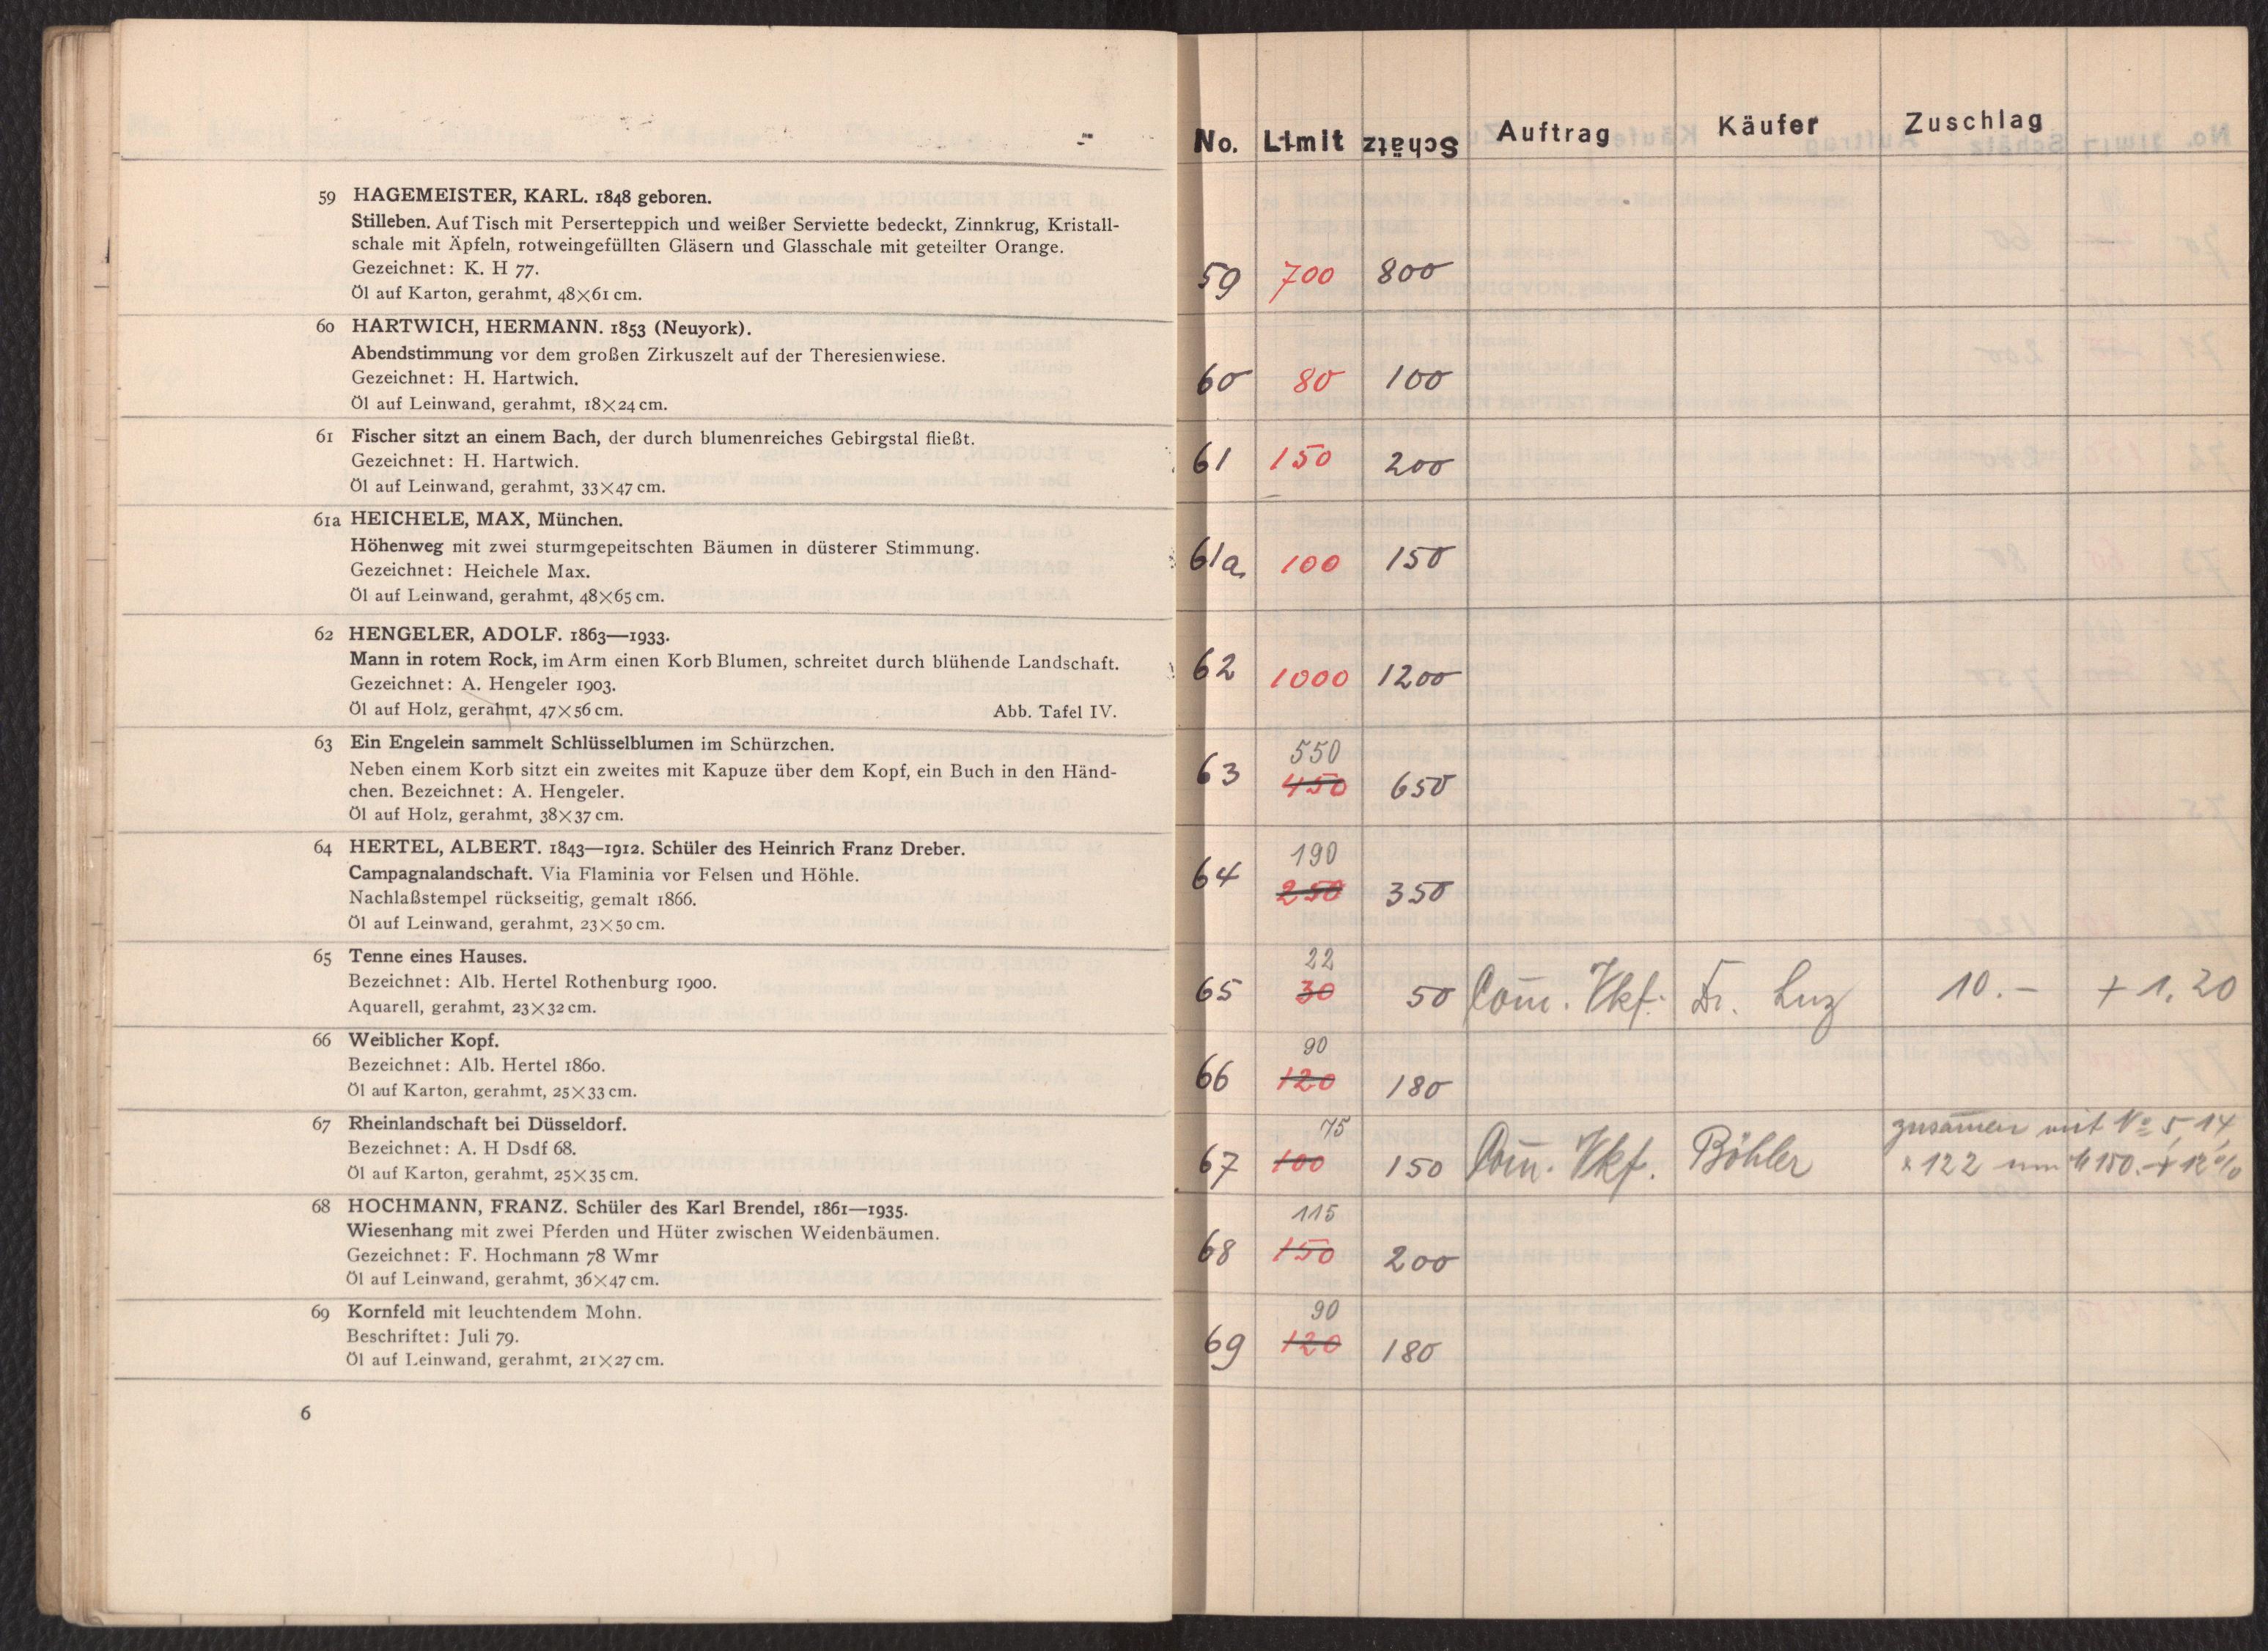 59 HAGEMEISTER, KARL. 1848 geboren.
Stilleben. Auf Tisch mit Perserteppich und weißer Serviette bedeckt, Zinnkrug, Kristall-
schale mit Äpfeln, rotweingefüllten Gläsern und Glasschale mit geteilter Orange.
Gezeichnet: K. H 77.
Öl auf Karton, gerahmt, 48×61 cm.
60 HARTWICH, HERMANN. 1853 (Neuyork).
Abendstimmung vor dem großen Zirkuszelt auf der Theresienwiese.
Gezeichnet: H. Hartwich.
Öl auf Leinwand, gerahmt, 18×24 cm.
61 Fischer sitzt an einem Bach, der durch blumenreiches Gebirgstal fließt.
Gezeichnet: H. Hartwich.
Öl auf Leinwand, gerahmt, 33×47 cm.
61a HEICHELE, MAX, München.
Höhenweg mit zwei sturmgepeitschten Bäumen in düsterer Stimmung.
Gezeichnet: Heichele Max.
Öl auf Leinwand, gerahmt, 48×65 cm.
62 HENGELER, ADOLF. 1863—1933.
Mann in rotem Rock, im Arm einen Korb Blumen, schreitet durch blühende Landschaft.
Gezeichnet: A. Hengeler 1903.
Öl auf Holz, gerahmt, 47×56 cm. Abb. Tafel IV.
63 Ein Engelein sammelt Schlüsselblumen im Schürzchen.
Neben einem Korb sitzt ein zweites mit Kapuze über dem Kopf, ein Buch in den Händ-
chen. Bezeichnet: A. Hengeler.
Öl auf Holz, gerahmt, 38×37 cm.
64 HERTEL, ALBERT. 1843—1912. Schüler des Heinrich Franz Dreber.
Campagnalandschaft. Via Flaminia vor Felsen und Höhle.
Nachlaßstempel rückseitig, gemalt 1866.
Öl auf Leinwand, gerahmt, 23×50 cm.
65 Tenne eines Hauses.
Bezeichnet: Alb. Hertel Rothenburg 1900.
Aquarell, gerahmt, 23×32 cm.
66 Weiblicher Kopf.
Bezeichnet: Alb. Hertel 1860.
Öl auf Karton, gerahmt, 25×33 cm.
67 Rheinlandschaft bei Düsseldorf.
Bezeichnet: A. H Dsdf 68.
Öl auf Karton, gerahmt, 25×35 cm.
68 HOCHMANN, FRANZ. Schüler des Karl Brendel, 1861—1935.
Wiesenhang mit zwei Pferden und Hüter zwischen Weidenbäumen.
Gezeichnet: F. Hochmann 78 Wmr
Öl auf Leinwand, gerahmt, 36×47 cm.
69 Kornfeld mit leuchtendem Mohn.
Beschriftet: Juli 79.
Öl auf Leinwand, gerahmt, 21×27 cm.
6
No. Limit Schätz Auftrag Käufer Zuschlag
59 700 800
60 80 100
61 150 200
61a 100 150
62 1000 1200
550
63 450 650
190
64 250 350
22
65 30 50 Com. Vkf. Dr. Luz 10.- + 1,20
90
66 120 180
75
67 100 150 Com. Vkf. Böhler zusamen mit No 5, 14,
× 122 um M 150.- + 12%
115
68 150 200
90
69 120 180